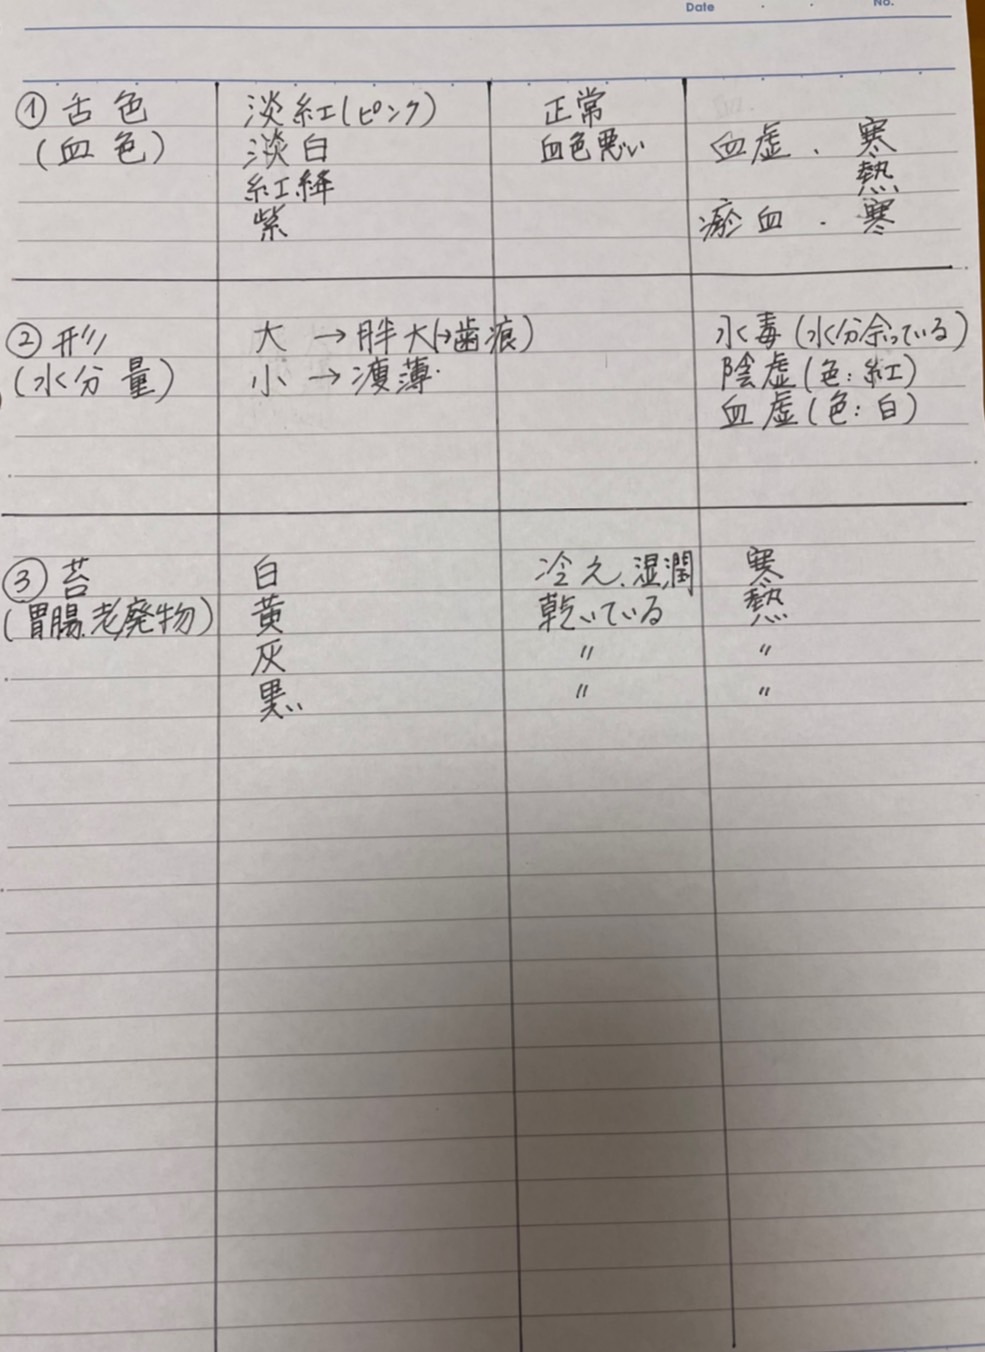 Date No.
① 舌色 淡紅(ピンク) 正常
(血色) 淡白 血色悪い 血虚、寒
紅絳 熱
紫 瘀血、寒
② 形 大→胖大(→歯痕) 水毒(水分余っている)
(水分量) 小→痩薄 陰虚(色:紅)
血虚(色:白)
③ 苔 白 冷え、湿潤 寒
(胃腸、老廃物) 黄 乾いている 熱
灰 〃 〃
黒 〃 〃